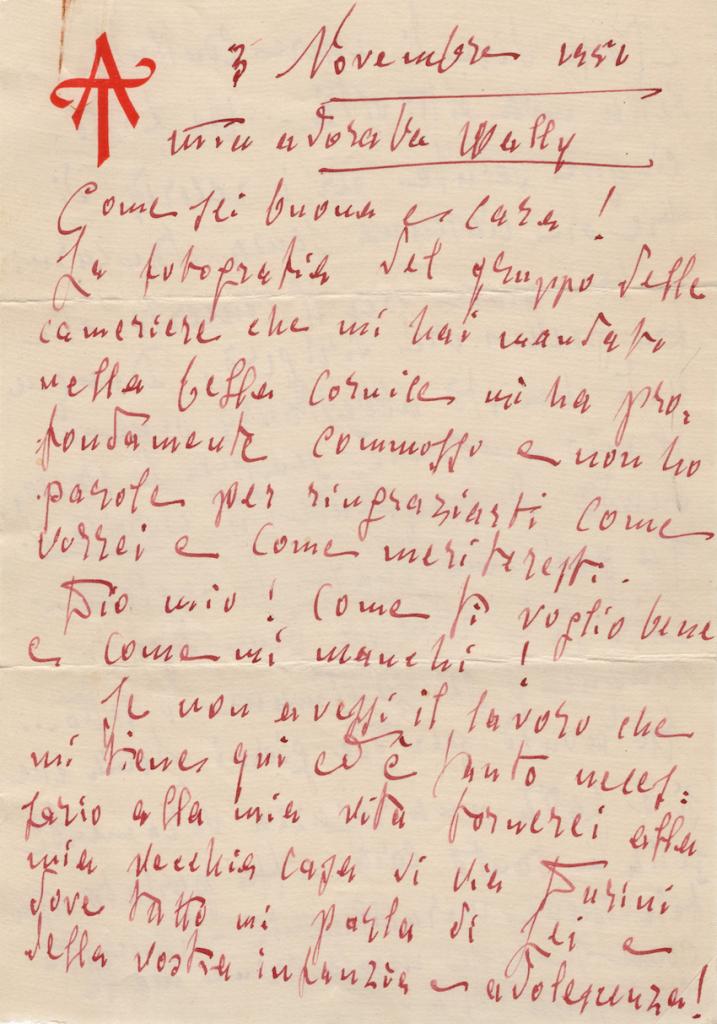 AT
3 Novembre 1951
mia adorata Wally
Come sei buona e cara!
La fotografia del gruppo delle
cameriere che mi hai mandato
nella bella cornice mi ha pro=
fondamente commosso e non ho
parole per ringraziarti come
vorrei e come meriteresti.
Dio mio! Come ti voglio bene
e come mi manchi!
Se non avessi il lavoro che
mi tiene qui ed è tanto neces=
sario alla mia vita tornerei alla
mia vecchia casa di via Durini
dove tutto mi parla di Lei e
della vostra infanzia e adolescenza!